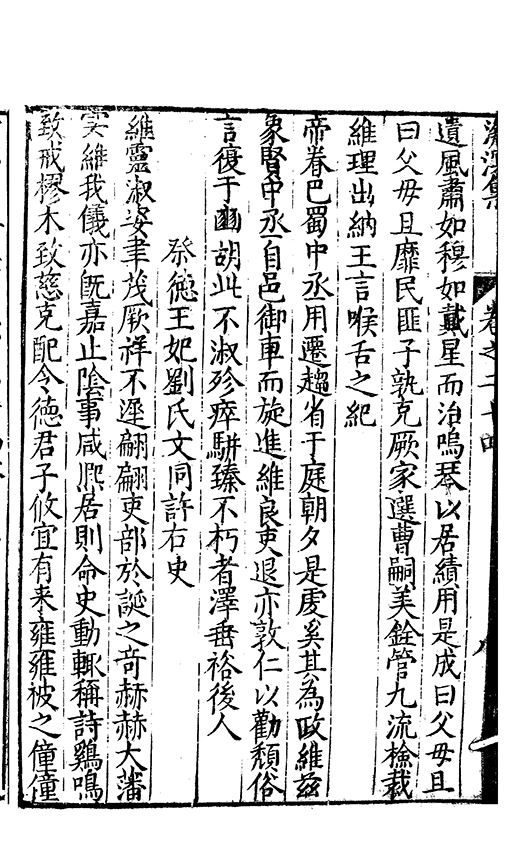 集 卷之二十四
遺風肅如穆如戴星而治鳴琴以居績用是成曰父母且
曰父母且靡民匪子孰克厥家選曹嗣美銓管九流檢裁
維理出納王言喉舌之紀
帝眷巴蜀中丞用遷趨省于庭朝夕是虔奚其為政維茲
象賢中丞自邑御車而旋進維良吏退亦敦仁以勸頹俗
言復于幽胡此不淑殄瘁駢臻不朽者澤垂裕後人
祭德王妃劉氏文同許右史
維靈淑姿聿茂厥祥不遲翩翩吏部於誕之奇赫赫大藩
寔維我儀亦既嘉止陰事咸熙居則命史動輒稱詩鷄鳴
致戒樛木致慈克配令德君子攸宜有来雍雍被之僮僮